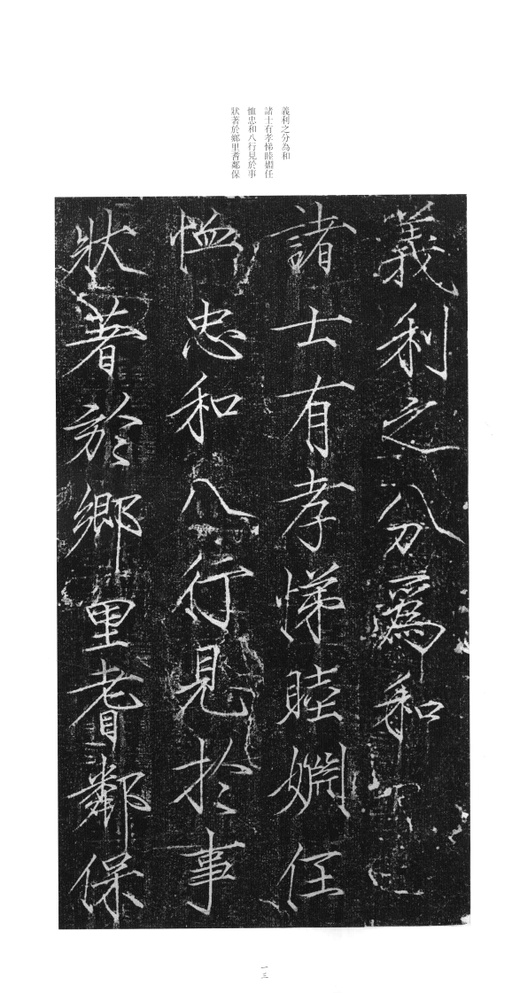 義利之分為和
諸士有孝悌睦嫺任
恤忠和八行見於事
狀著於鄉里耆鄰保
義利之分爲和
諸士有孝悌睦嫺任
恤忠和八行見於事
狀著於鄉里耆鄰保
一三